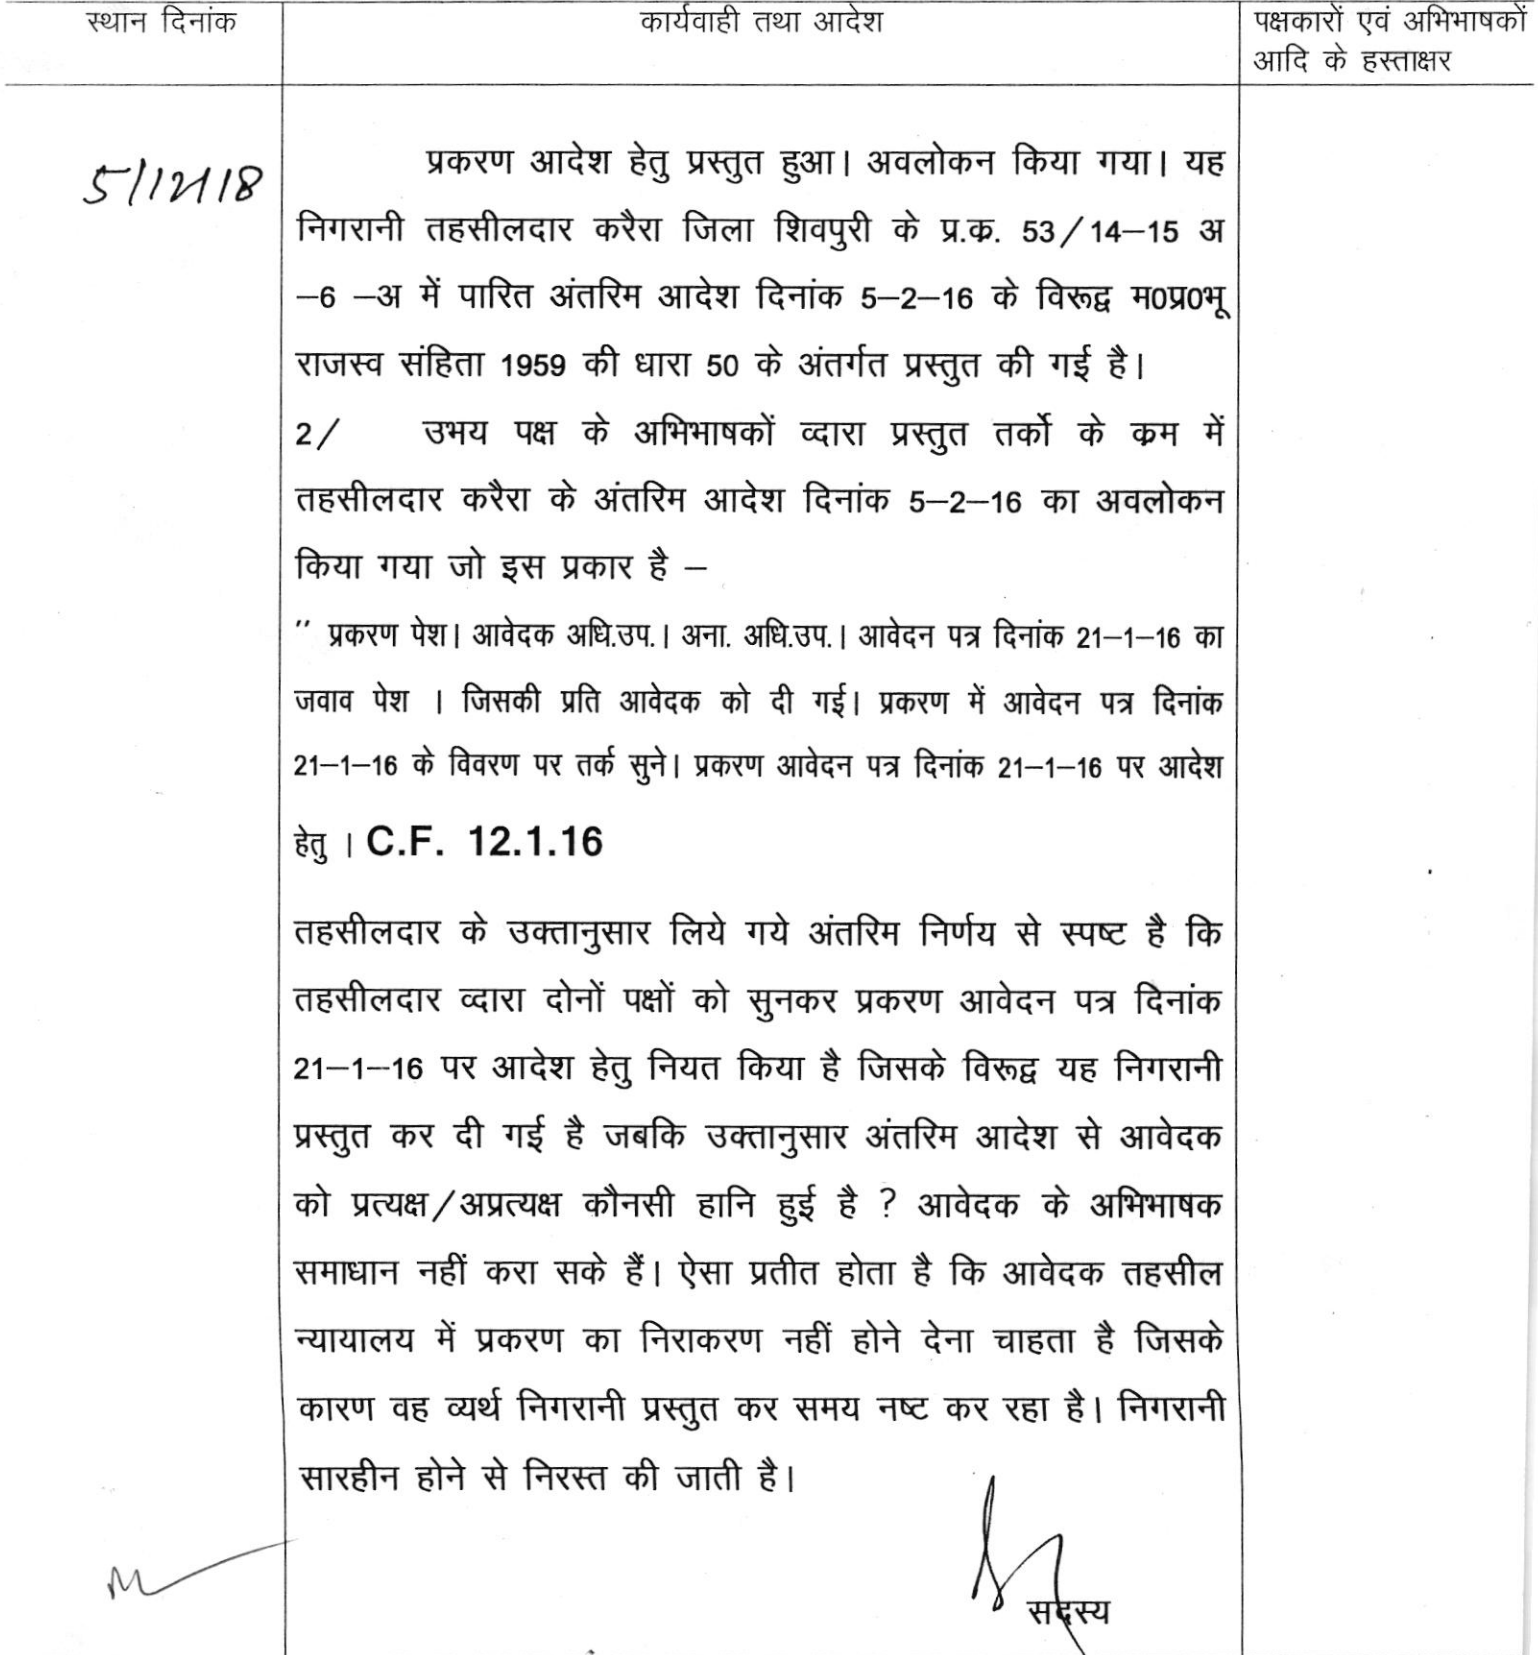 स्थान दिनांक
कार्यवाही तथा आदेश
पक्षकारों एवं अभिभाषकों
आदि के हस्ताक्षर
5/12/18
प्रकरण आदेश हेतु प्रस्तुत हुआ। अवलोकन किया गया। यह
निगरानी तहसीलदार करैरा जिला शिवपुरी के प्र.क. 53/14–15 अ
–6 –अ में पारित अंतरिम आदेश दिनांक 5–2–16 के विरूद्व म0प्र0भू
राजस्व संहिता 1959 की धारा 50 के अंतर्गत प्रस्तुत की गई है।
2/ उभय पक्ष के अभिभाषकों व्दारा प्रस्तुत तर्को के कम में
तहसीलदार करैरा के अंतरिम आदेश दिनांक 5–2–16 का अवलोकन
किया गया जो इस प्रकार है –
" प्रकरण पेश। आवेदक अधि.उप.। अना. अधि.उप.। आवेदन पत्र दिनांक 21–1–16 का
जवाव पेश । जिसकी प्रति आवेदक को दी गई। प्रकरण में आवेदन पत्र दिनांक
21–1–16 के विवरण पर तर्क सुने। प्रकरण आवेदन पत्र दिनांक 21–1–16 पर आदेश
हेतु । C.F. 12.1.16
तहसीलदार के उक्तानुसार लिये गये अंतरिम निर्णय से स्पष्ट है कि
तहसीलदार व्दारा दोनों पक्षों को सुनकर प्रकरण आवेदन पत्र दिनांक
21–1–16 पर आदेश हेतु नियत किया है जिसके विरूद्व यह निगरानी
प्रस्तुत कर दी गई है जबकि उक्तानुसार अंतरिम आदेश से आवेदक
को प्रत्यक्ष/अप्रत्यक्ष कौनसी हानि हुई है ? आवेदक के अभिभाषक
समाधान नहीं करा सके हैं। ऐसा प्रतीत होता है कि आवेदक तहसील
न्यायालय में प्रकरण का निराकरण नहीं होने देना चाहता है जिसके
कारण वह व्यर्थ निगरानी प्रस्तुत कर समय नष्ट कर रहा है। निगरानी
सारहीन होने से निरस्त की जाती है।
सदस्य